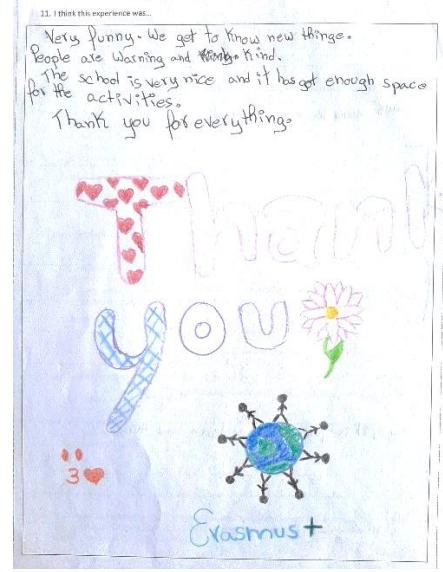 11. I think this experience was...
Very funny. We get to know new things.
People are Warning and Kind.
The school is very nice and it has got enough space
for the activities.
Thank you for everything.
Thank
you
3
Erasmus+